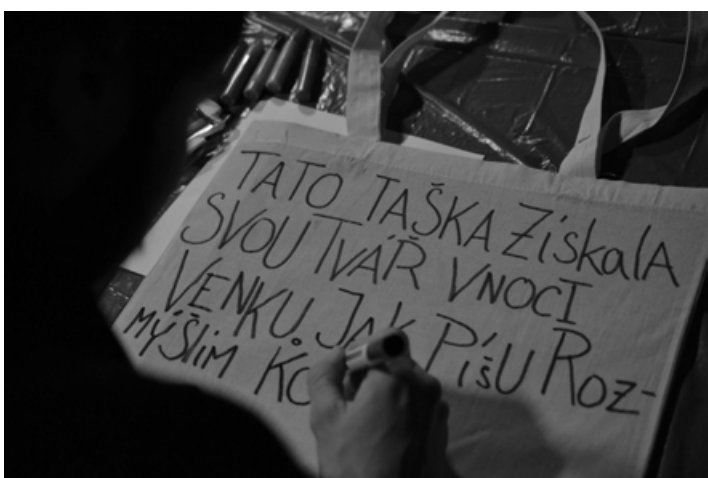 TATO TAŠKA ZískalA
SVOU TVÁŘ VNOCI
VENKU. JAK PíšU ROZ-
MÝŠLíM